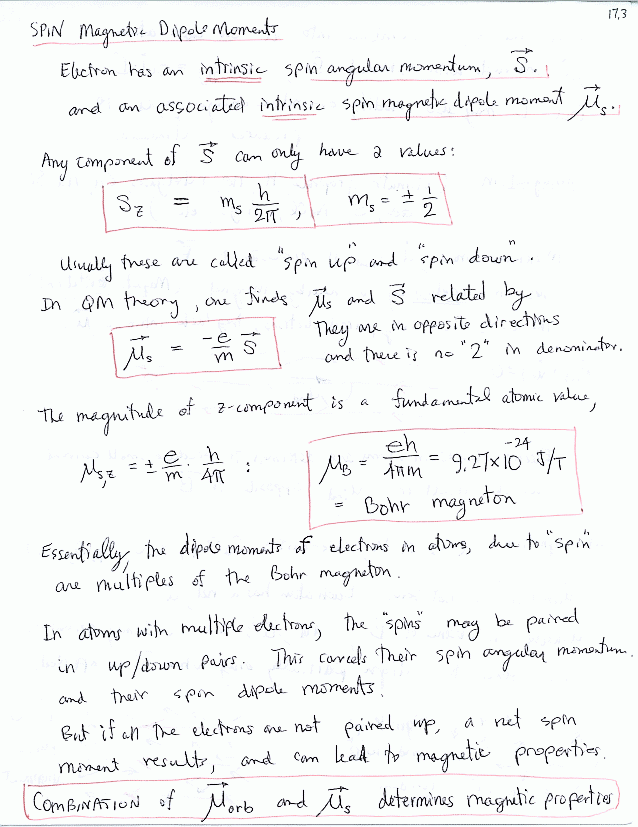 17.3
SPIN Magnetic Dipole Moments
Electron has an intrinsic spin angular momentum, S⃗.
and an associated intrinsic spin magnetic dipole moment μ⃗s.
Any component of S⃗ can only have 2 values:
Sz = ms h/2π , ms = ± 1/2
Usually these are called "spin up" and "spin down".
In QM theory, one finds μ⃗s and S⃗ related by
μ⃗s = -e/m S⃗ They are in opposite directions
and there is no "2" in denominator.
The magnitude of z-component is a fundamental atomic value,
μs,z = ± e/m · h/4π : μB = eh/4πm = 9.27×10^-24 J/T
= Bohr magneton
Essentially, the dipole moments of electrons in atoms, due to "spin"
are multiples of the Bohr magneton.
In atoms with multiple electrons, the "spins" may be paired
in up/down pairs. This cancels their spin angular momentum.
and their spin dipole moments.
But if all the electrons are not paired up, a net spin
moment results, and can lead to magnetic properties.
COMBINATION of μ⃗orb and μ⃗s determines magnetic properties